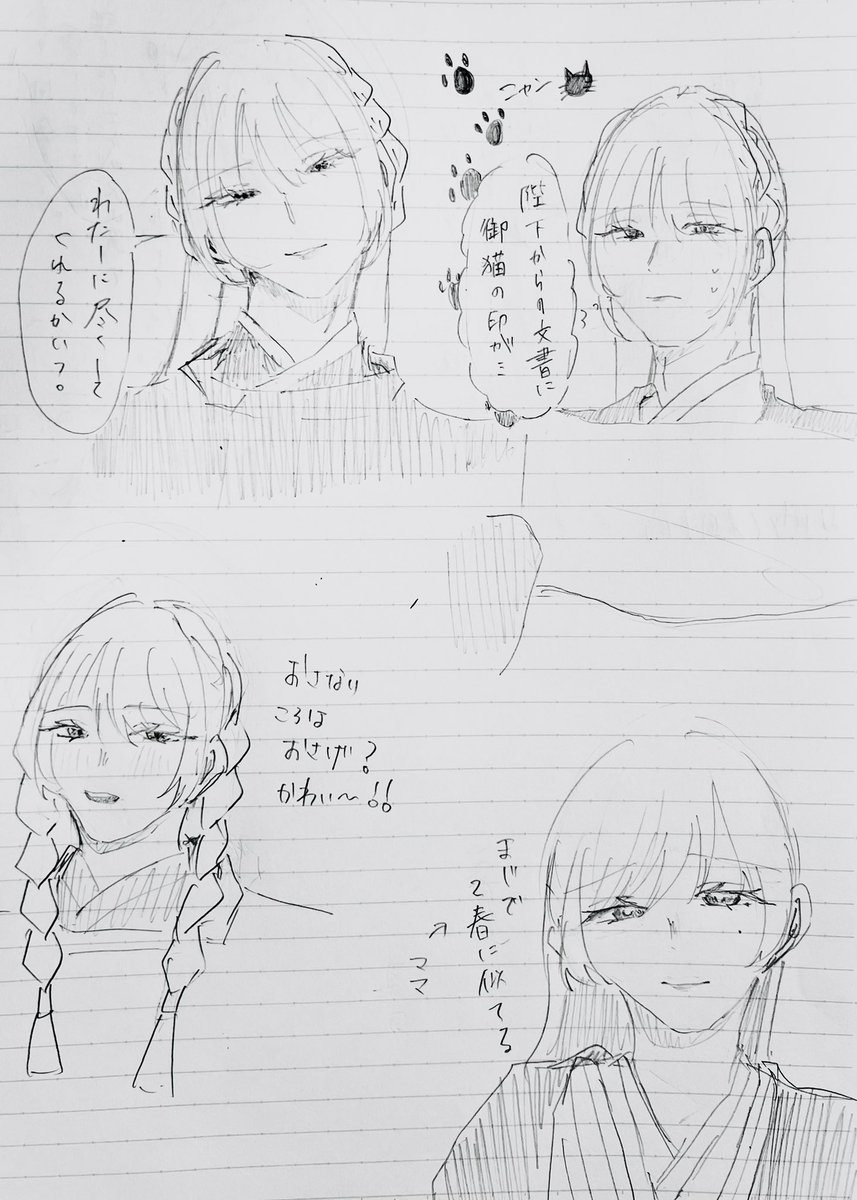 わたしに尽くして
くれるかい?。
ニャン
陛下からの文書に
御猫の印が…
おさない
ころは
おさげ?
かわい〜!!
まじで
春に似てる
ママ